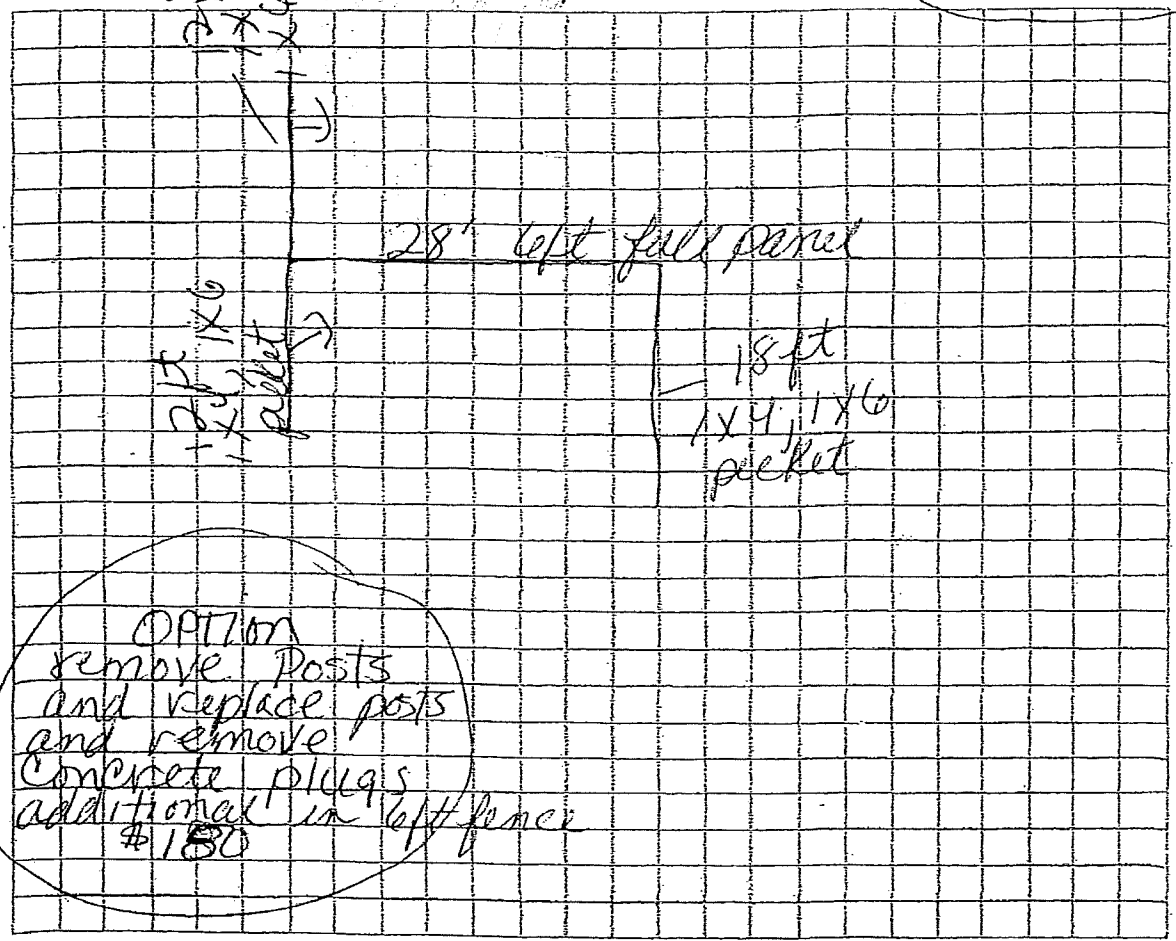 12
1X
1X6
28' 6ft full panel
12ft
1X4, 1X6
picket
18ft
1X4, 1X6
picket
OPTION
remove Posts
and replace posts
and remove
Concrete plugs
additional in 6ft fence
$180